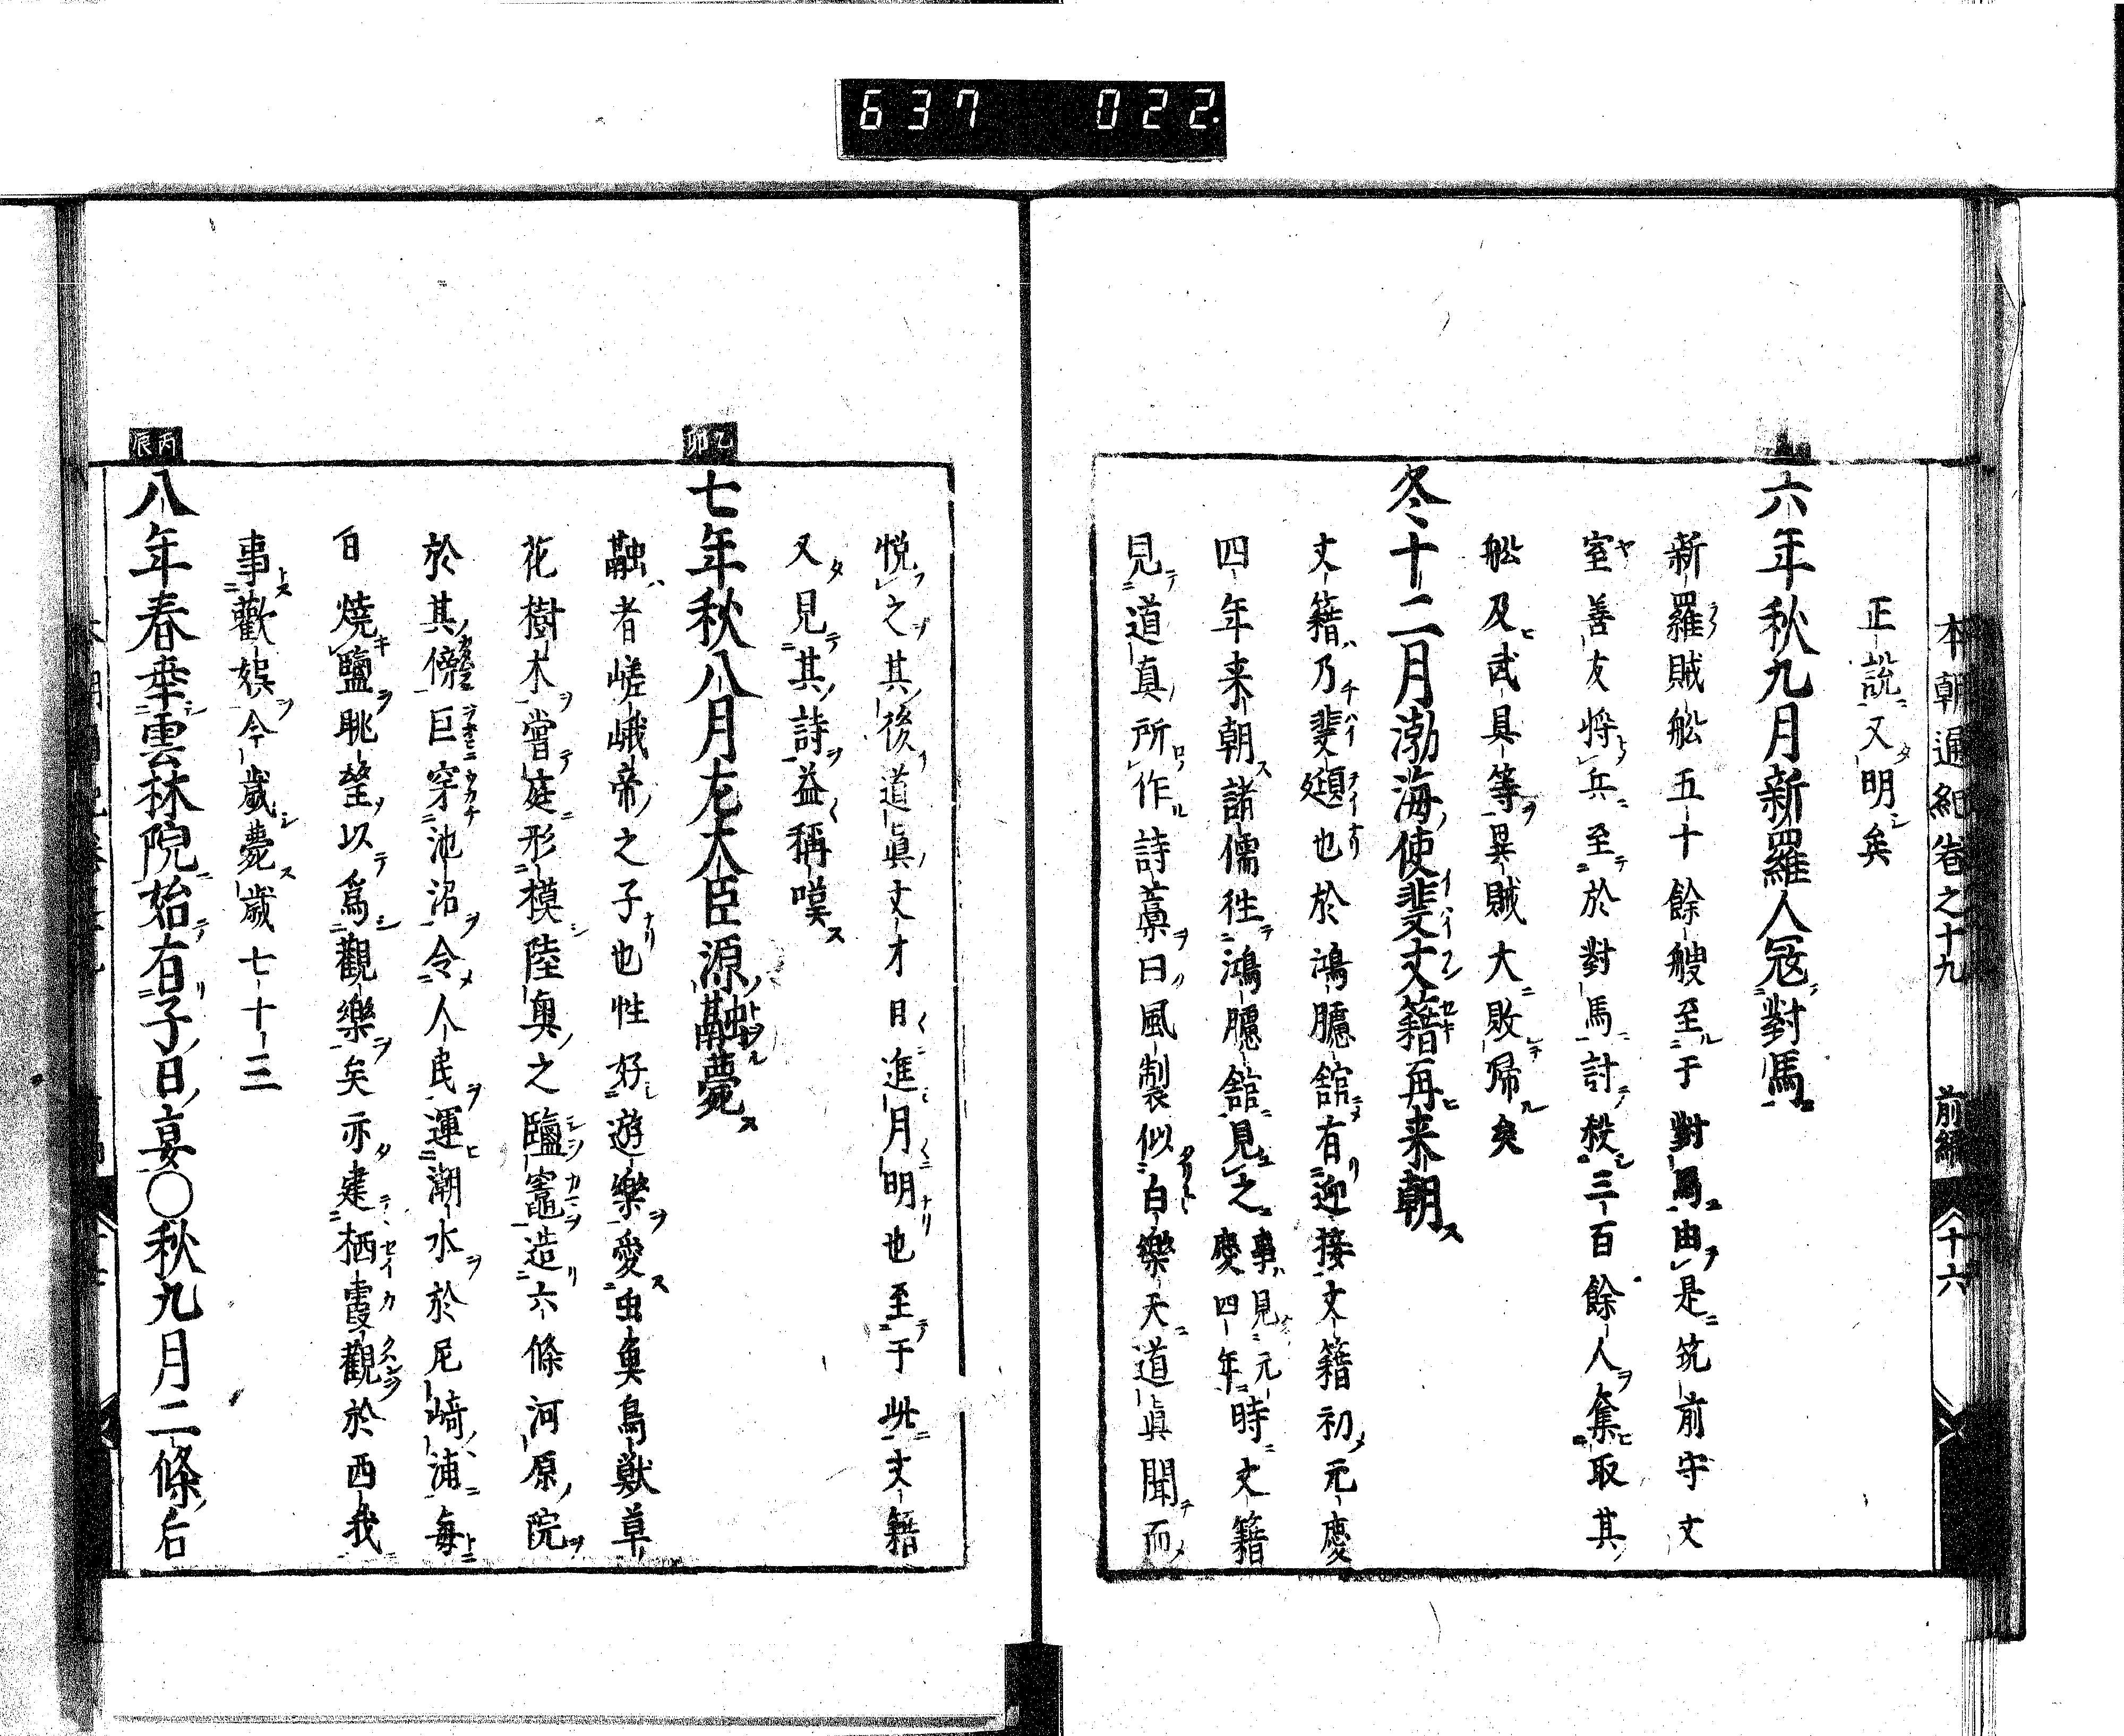 637 022.
本朝通紀卷之十九 前編 十六
正説又明矣
六年秋九月新羅人冦對馬
新羅賊舩五十餘艘至于對馬由是筑前守文
室善友将兵至於對馬討殺三百餘人奪取其
舩及武具等異賊大敗帰矣
冬十二月渤海使裴文籍再来朝
文籍乃裴頲也於鴻臚舘有迎接文籍初元慶
四年来朝諸儒徃鴻臚舘見之事見元慶四年時文籍
見道真所作詩藁曰風製似白樂天道眞聞而
悦之其後道眞文才日進月明也至于此文籍
又見其詩益稱嘆
乙卯
七年秋八月左大臣源融薨
融者嵯峨帝之子也性好遊樂愛虫魚鳥獣草
花樹木嘗庭形模陸奥之鹽竈造六條河原院
於其傍巨穿池沼令人民運潮水於尼崎浦毎
自燒鹽眺望以爲觀樂矣亦建栖霞觀於西我
事歡娯今歳薨歳七十三
丙辰
八年春幸雲林院始右子日宴〇秋九月二條后